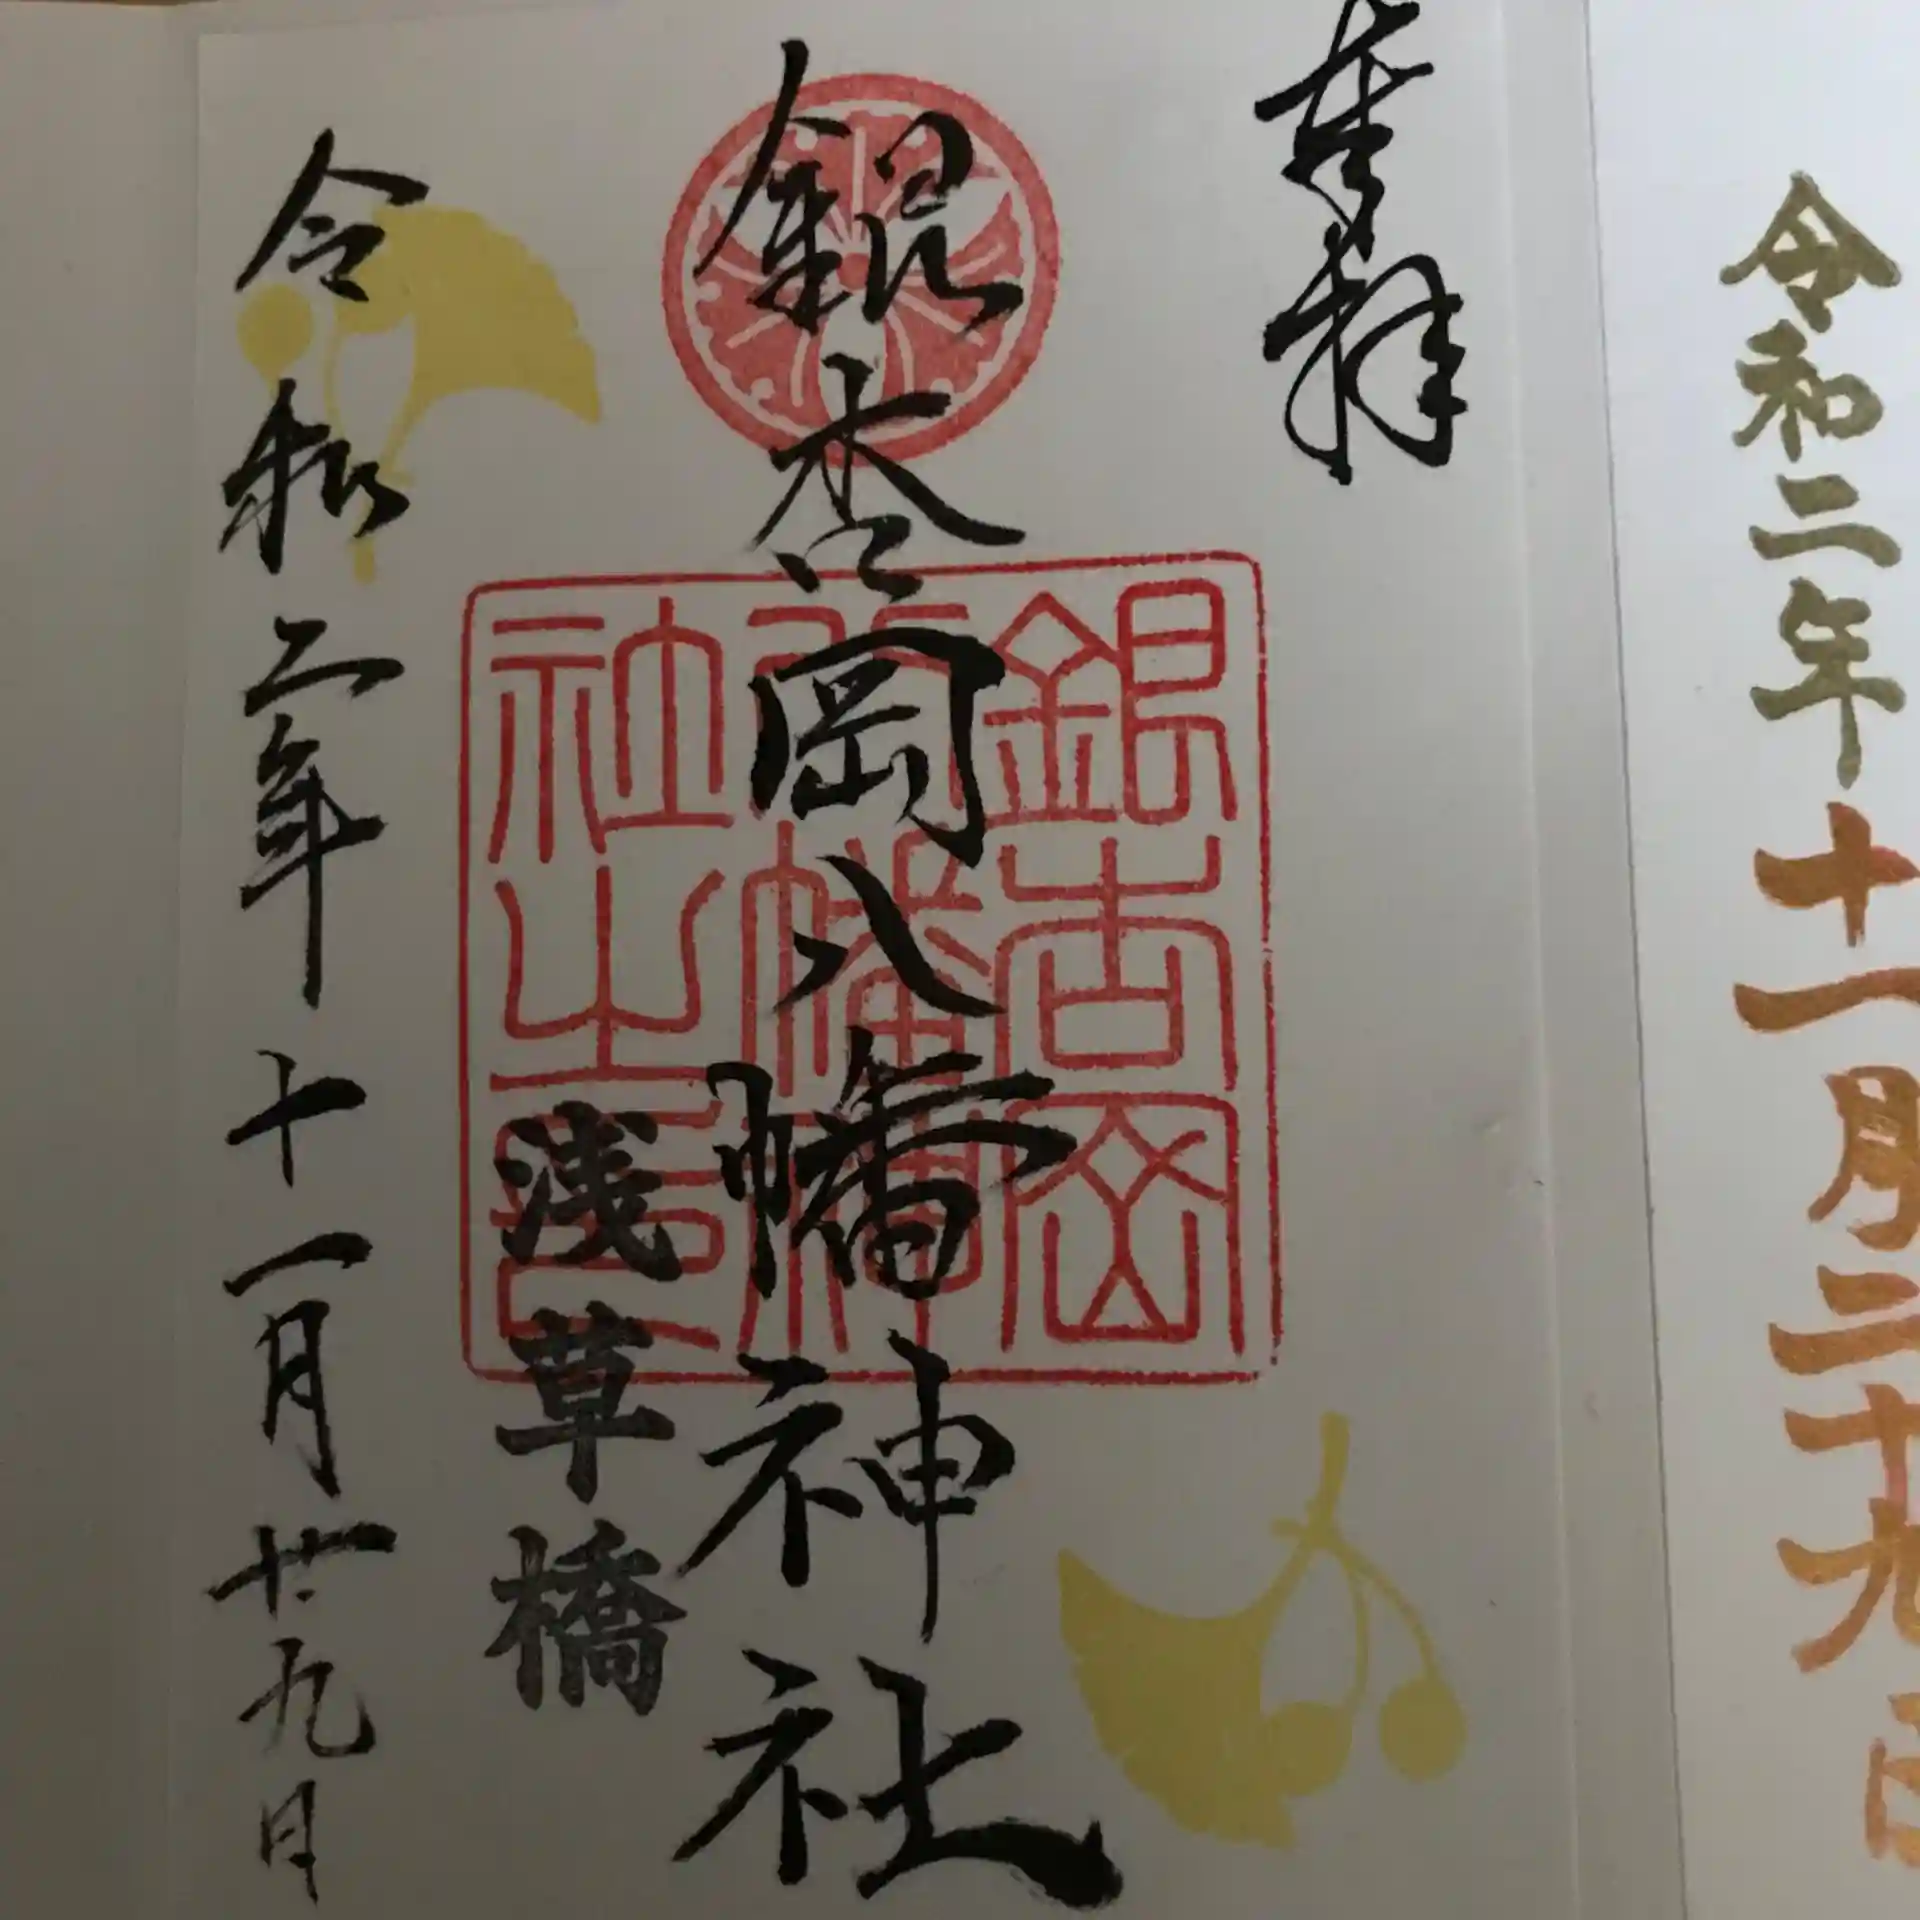 令和二年十一月二十九日
奉拝
銀杏岡八幡神社
銀杏岡八幡神社之印
浅草橋
令和二年十一月廿九日